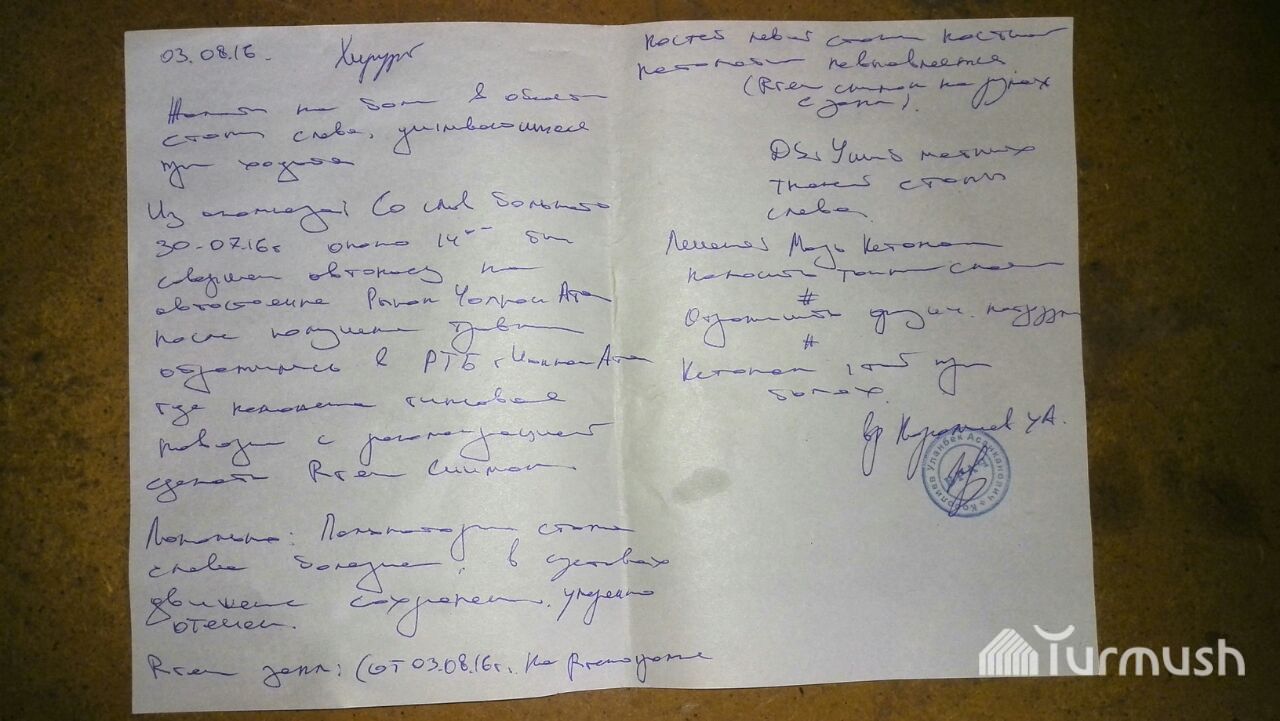 03.08.16. Хирург
Жалобы на боли в области
стопы слева, усиливающиеся
при ходьбе
Из анамнеза: Со слов больного
30-07.16г около 14 00 был
совершен автонаезд на
автостоянке Рынок Чолпон Ата
после получения травмы
обратились в РТБ г. Чолпон Ата
где наложена гипсовая
повязка с рекомендацией
сделать Rген снимок.
Локально: Пальпаторно стопа
слева болезнен, в суставах
движения сохранены, умеренно
отечен.
Rген закл: (от 03.08.16г. На Rгенограмме
костей левой стопы костной
патологии не выявляется
(Rген снимок на руках
с закл).
DS: Ушиб мягких
тканей стопы
слева.
Лечение: Мазь Кетонал
наносить тонким слоем
#
Ограничить физич. нагрузки
#
Кетонал 1 таб при
болях.
вр УА.
Уланбек Асанканович
Turmush